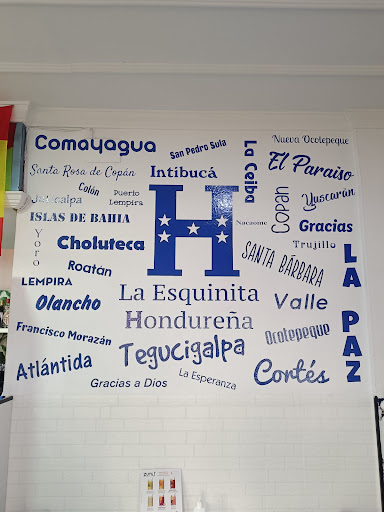 Comayagua
San Pedro Sula
La Ceiba
Nueva Ocotepeque
El Paraíso
Santa Rosa de Copán
Intibucá
Colón
Juticalpa
Puerto
Lempira
Copán
Yuscarán
ISLAS DE BAHIA
Nacaome
Gracias
Yoro
Choluteca
H
Trujillo
SANTA BÁRBARA
LA PAZ
Roatán
LEMPIRA
Olancho
La Esquinita
Hondureña
Valle
Francisco Morazán
Tegucigalpa
Ocotepeque
Atlántida
Gracias a Dios
La Esperanza
Cortés